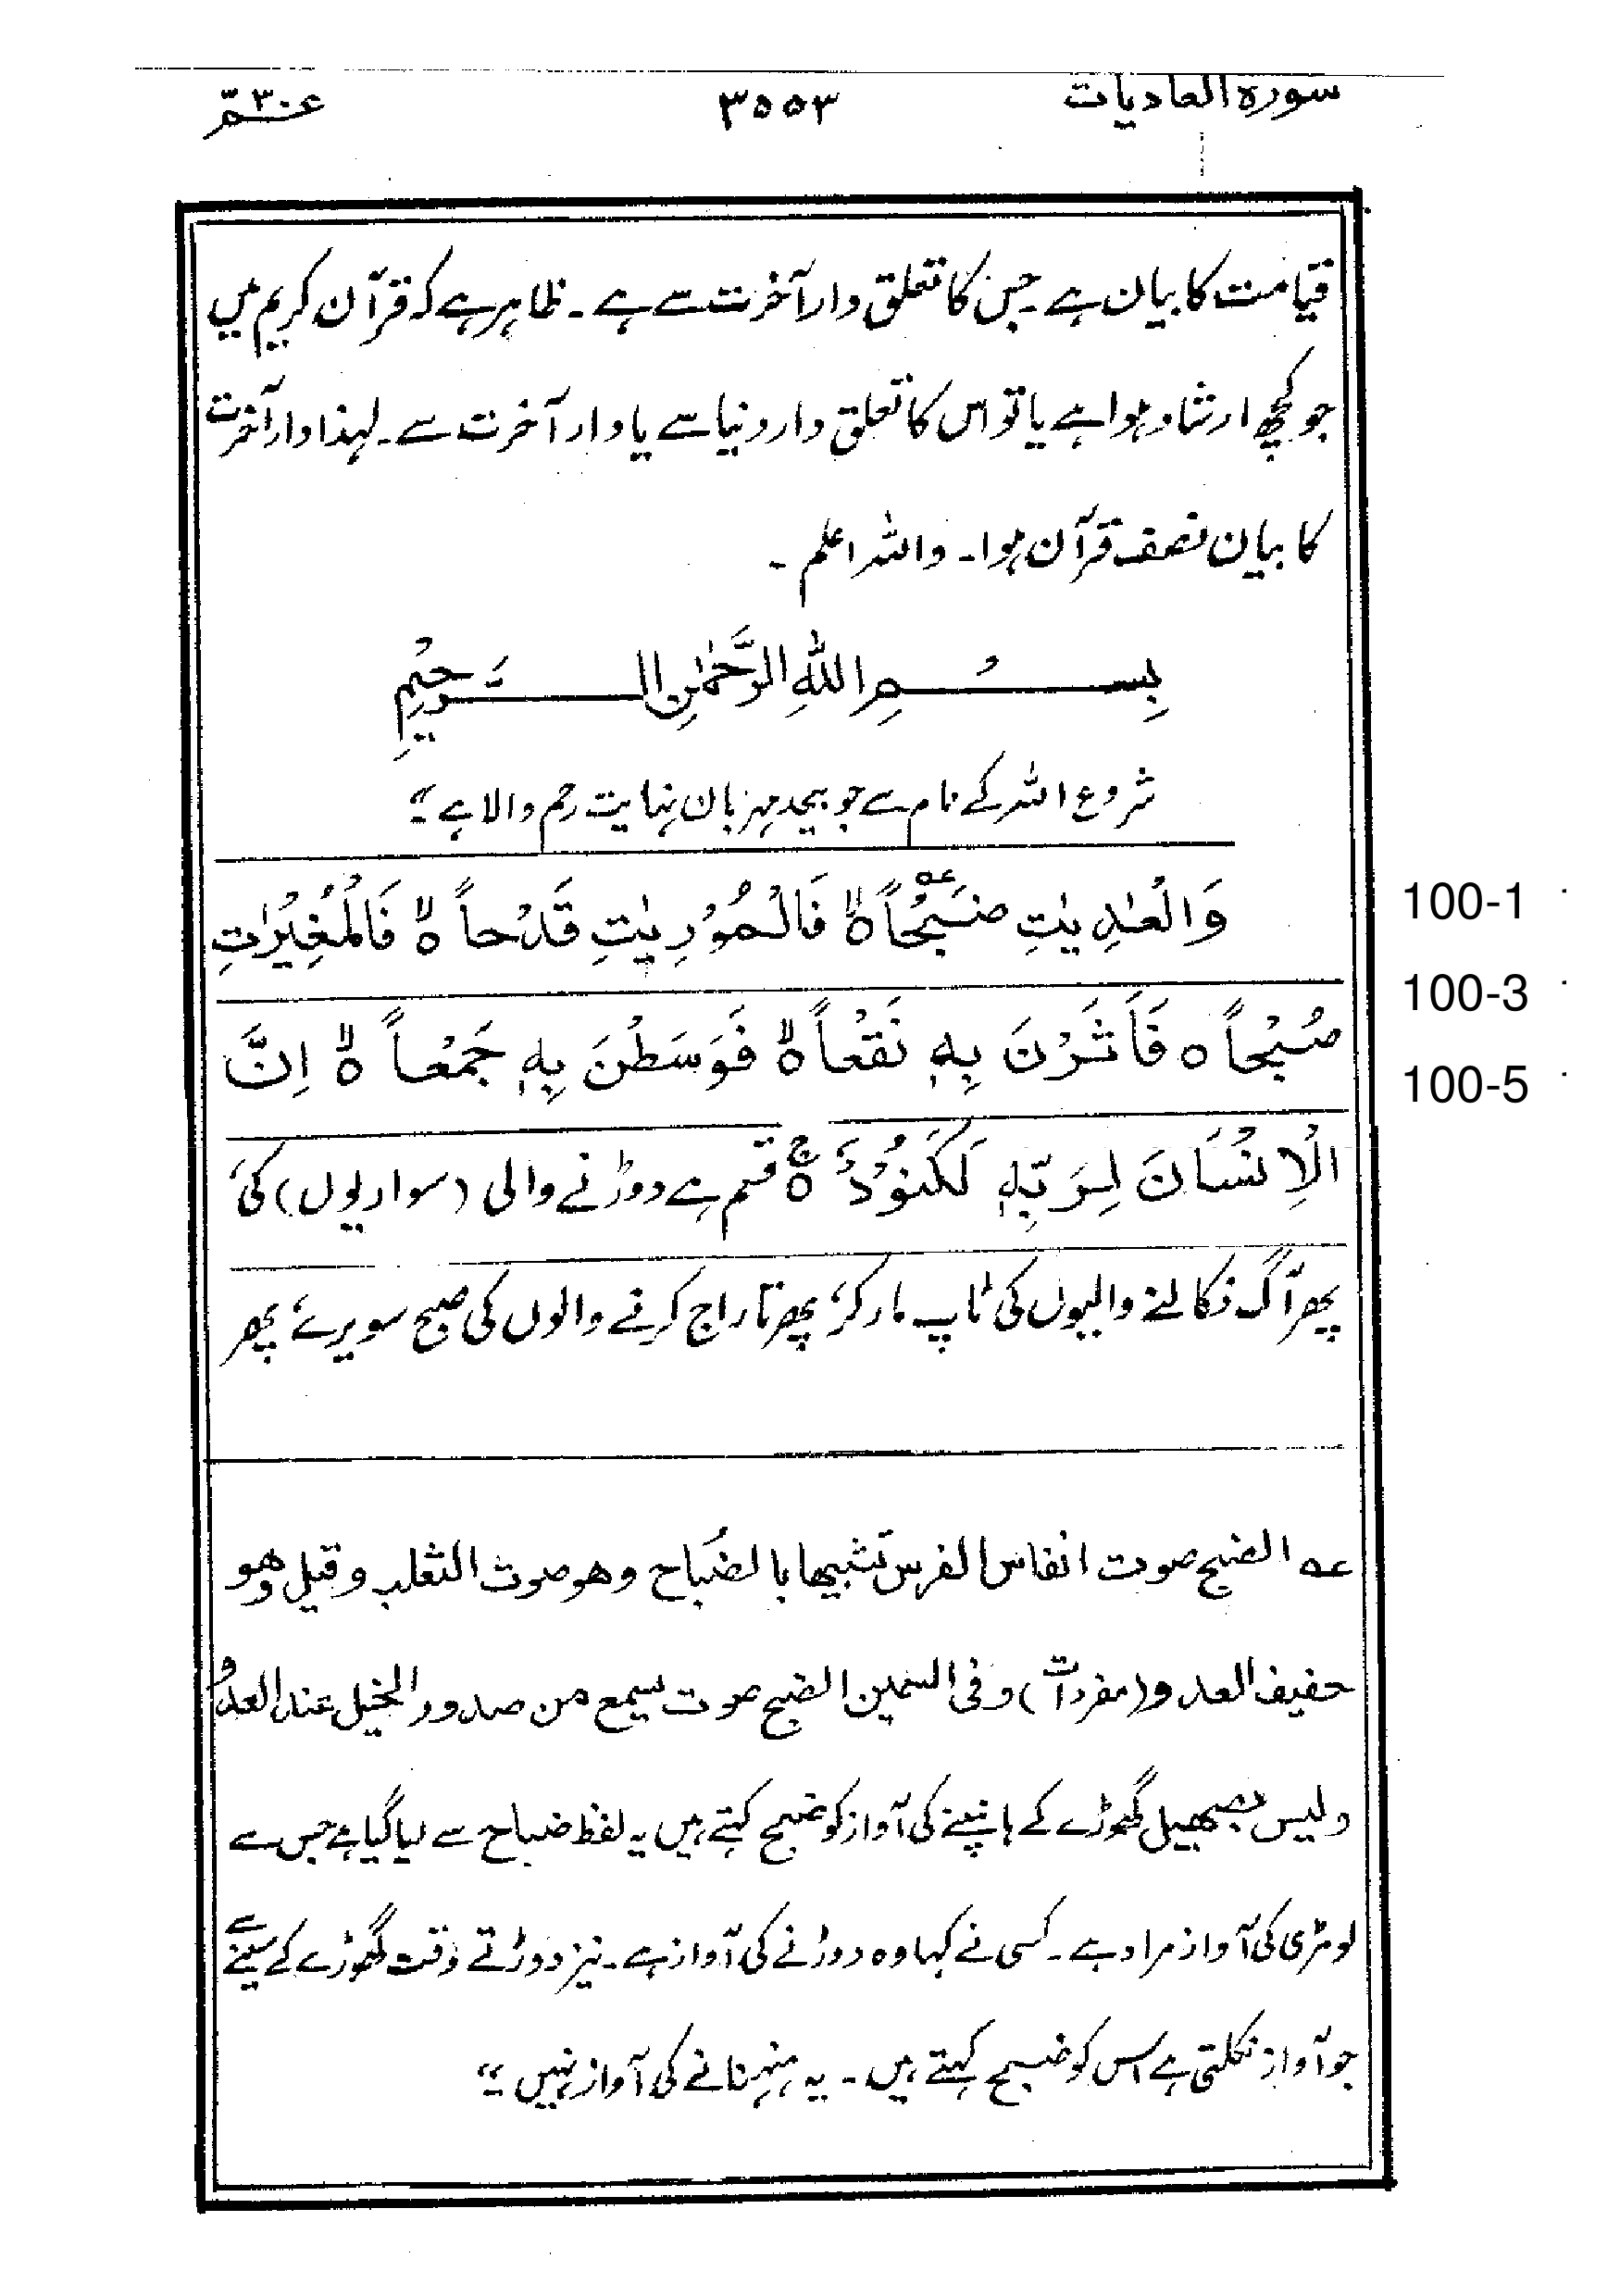 سورہ العادیات ۳۵۵۳ عم ۳۰
قیامت کا بیان ہے۔ جس کا تعلق دار آخرت سے ہے۔ ظاہر ہے کہ قرآن کریم میں
جو کچھ ارشاد ہوا ہے یا تو اس کا تعلق دار دنیا سے یا دار آخرت سے۔ لہذا دار آخرت
کا بیان نصف قرآن ہوا۔ واللہ اعلم۔
بِسْمِ اللّٰهِ الرَّحْمٰنِ الرَّحِیْمِ
شروع اللہ کے نام سے جو بیحد مہربان نہایت رحم والا ہے"
وَالْعٰدِیٰتِ ضَبْحًا ۙ فَالْمُوْرِیٰتِ قَدْحًا ۙ فَالْمُغِیْرٰتِ
100-1
صُبْحًا ۙ فَاَثَرْنَ بِهٖ نَقْعًا ۙ فَوَسَطْنَ بِهٖ جَمْعًا ۙ اِنَّ
100-3
100-5
الْاِنْسَانَ لِرَبِّهٖ لَكَنُوْدٌ ۚ قسم ہے دوڑنے والی (سواریوں) کی،
پھر آگ نکالنے والیوں کی ٹاپ مار کر، پھر تاراج کرنے والوں کی صبح سویرے، پھر
عہ الضبح صوت انفاس الفرس تشبیھا بالضُباح وھو صوت الثعلب وقیل وھو
حفیف العدو (مفردات) وفی السمین الضبح صوت یسمع من صدور الخیل عند العدو
ولیس بصھیل گھوڑے کے ہانپنے کی آواز کو ضبح کہتے ہیں یہ لفظ ضباح سے لیا گیا ہے جس سے
لومڑی کی آواز مراد ہے۔ کسی نے کہا وہ دوڑنے کی آواز ہے۔ نیز دوڑتے وقت گھوڑے کے سینے سے
جو آواز نکلتی ہے اس کو ضبح کہتے ہیں۔ یہ ہنہنانے کی آواز نہیں"